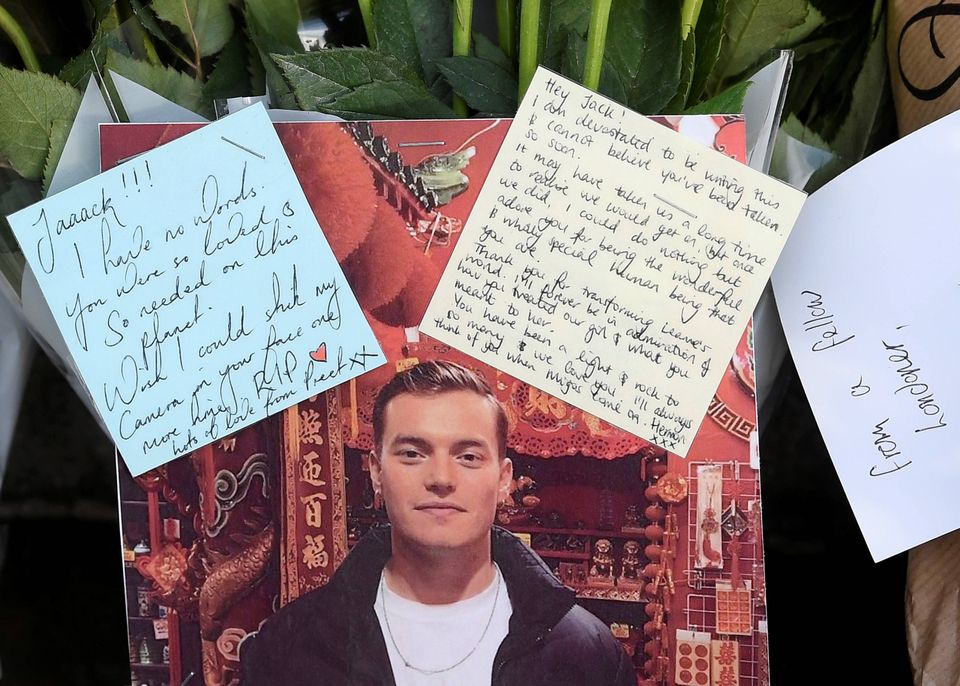 Jaaack!!!
I have no words.
You were so loved &
So needed on this
planet.
Wish I could stick my
Camera in your face one
more time, RIP
lots of love from Preet xx
Hey Jack!
I am devastated to be writing this
& cannot believe you've been taken
so soon.
It may have taken us a long time
to realise we would get on, but once
we did, I could do nothing but
adore you for being the wonderful
& wholly special human being that
you are.
Thank you for transforming
word. I'll forever be in admiration of
how you treated our girl & what you
meant to her.
You have been a light & rock to
so many & we love you. I'll always
think of you when
xxx
From a fellow
Londoner.
照
百
福